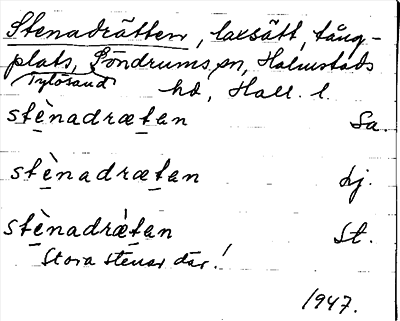 Stenadrätten, laxsätt, tång-
plats, Söndrums sn, Halmstads
Tylösand hd, Hall. l.
stènadrætan Sa.
stènadrætan Lj.
stènadræ̀tan St.
Stora stenar där!
1947.